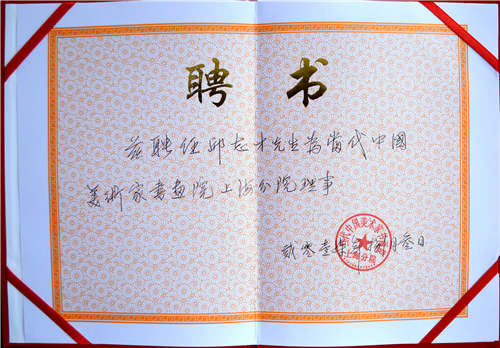 聘书
兹聘任邱志才先生为当代中國
美术家书画院上海分院理事
贰零壹
月叁日
上海分院